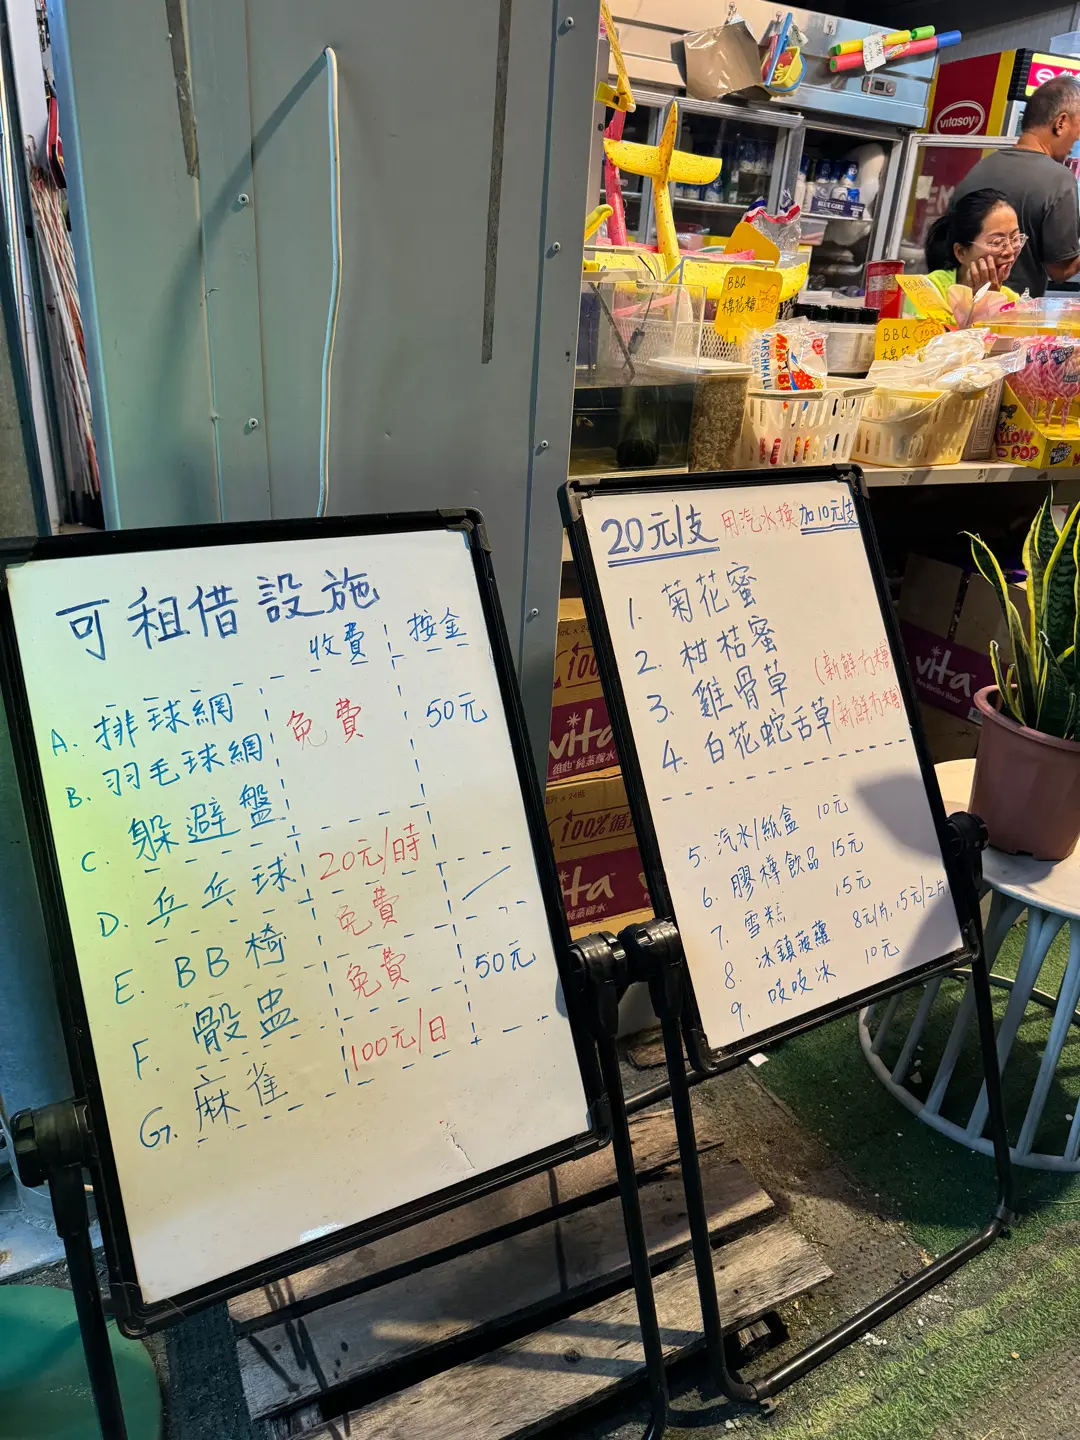 可租借設施
收費 按金
A. 排球網 免費 50元
B. 羽毛球網
C. 躲避盤
D. 乒乓球 20元/時
E. BB椅 免費
F. 骰盅 免費 50元
G. 麻雀 100元/日
20元/支 用汽水換 加10元/支
1. 菊花蜜
2. 柑桔蜜
3. 雞骨草 (新鮮冇糖)
4. 白花蛇舌草 (新鮮冇糖)
5. 汽水/紙盒 10元
6. 膠樽飲品 15元
7. 雪糕 15元
8. 冰鎮菠蘿 8元/片, 15元/2片
9. 吱吱冰 10元
BBQ
棉花糖
BBQ
vitasoy
BLUE GIRL
MARSHMALL
POP
100%
vita
維他純蒸餾水
100% 循
vita
純蒸餾水
vita